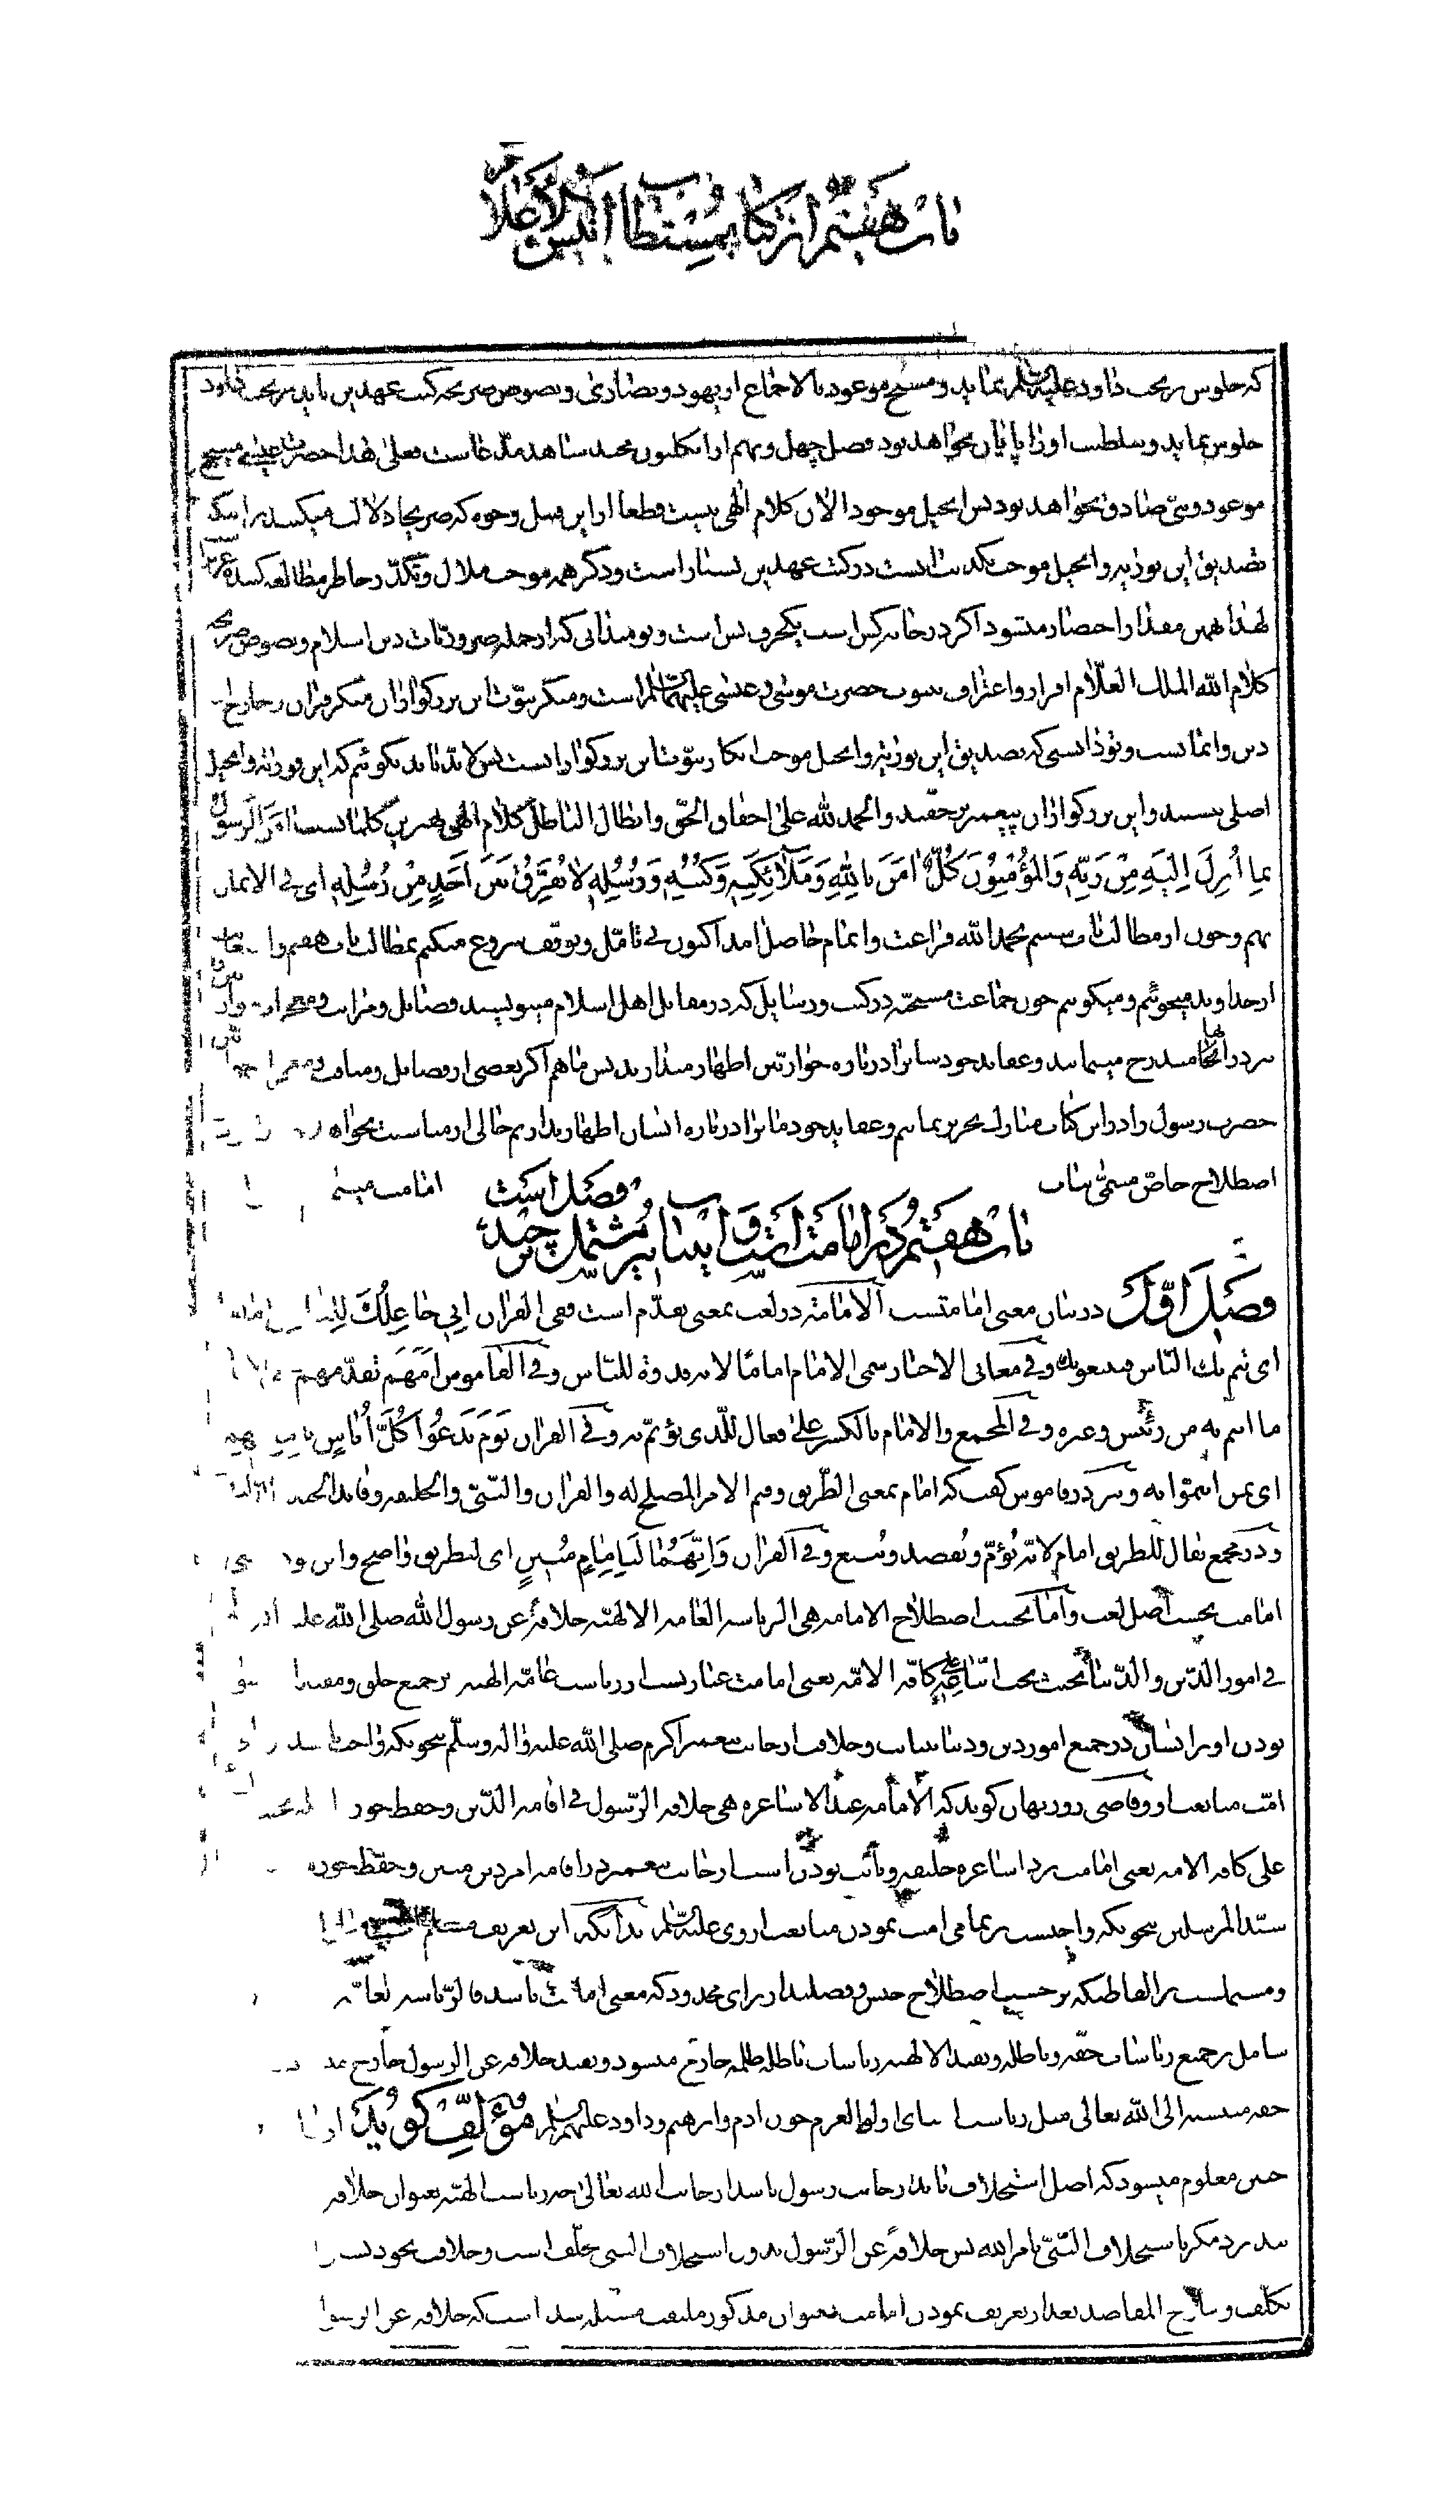 باب هفتم از کتاب مستطاب انیس الاعلام
که جلوس بر تخت داود علیه السلام نماید و مسیح موعود بالاجماع از یهود و نصاری و نصوص صریحه کتب عهدین باید بر تخت داود
جلوس نماید و سلطنت او را پایان نخواهد بود فصل چهل و نهم از تکوین محمد شاهد مدعاست فعلی هذا حضرت عیسی مسیح
موعود و نبی صادق نخواهد بود پس انجیل موجود الان کلام الهی نیست قطعا از این قبیل وجوه که صریحا دلالت میکنند بر اینکه
تصدیق این توریة و انجیل موجب تکذیب انست در کتب عهدین بسیار است و ذکر همه موجب ملال و تکدر خاطر مطالعه کننده
لهذا بهمین مقدار اختصار میشود اگر در خانه کس است یکحرف بس است و تو میدانی که از جمله ضروریات دین اسلام و نصوص صریحه
کلام الله الملک العلام اقرار و اعتراف بنبوت حضرت موسی و عیسی علیهما السلام است و منکر نبوت این بزرگواران منکر قران و خارج
دین و ایمانست و تو دانستی که تصدیق این توریة و انجیل موجب انکار نبوت این بزرگوارانست پس لابد باید بگوئیم که این توریة و انجیل
اصلی نیستند و این بزرگواران پیغمبر بر حقند و الحمد لله علی احقاق الحق و ابطال الباطل کلام الهی بهترین کلماتست امَنَ الرَّسُولُ
بِما اُنزِلَ اِلَیهِ مِنْ رَبِّهٖ وَالمُؤْمِنُونَ کُلٌّ امَنَ بِاللهِ وَمَلٰائِکَتِهٖ وَکُتُبِهٖ وَرُسُلِهٖ لاٰ نُفَرِّقُ بَینَ اَحَدٍ مِنْ رُسُلِهٖ ای فی الایمان
بهم و چون از مطالب باب ششم بحمد الله فراغت و اتمام حاصل امد اکنون بی تامل و توقف شروع میکنیم بمطالب باب هفتم و
از خداوند میجوئیم و میگوئیم چون جماعت مسیحیه در کتب و رسایل که در مقابل اهل اسلام مینویسند فضائل و مراتب و معجزات
نیز در انها مندرج مینمایند و عقاید خود شانرا درباره حواریین اظهار میدارند پس ما هم اگر بعضی از فضایل و مناقب و معجزات
حضرت رسول را در این کتاب مبارک تحریر نمائیم و عقاید خود مانرا درباره ایشان اظهار بداریم خالی از مناسبت نخواهد
اصطلاح خاص مسمی بباب امامت
باب هفتم در امامت است و این باب نیز مشتمل بر چند فصل است
فصل اول در بیان معنی امامتست الامامة در لغت بمعنی تقدم است ففی القران اِنّی جاعِلُکَ لِلنّاسِ
ای یأتم بک الناس فیتبعونک و فی معانی الاخبار سمی الامام اماما لانه قدوة للناس و فی القاموس اَمَّهُم تقدمهم
ما ائتم به من رئیس و غیره و فی المجمع و الامام بالکسر علی فعال للذی یؤتم به و فی القران یَومَ نَدعُوا کُلَّ اُناسٍ
ای بمن ائتموا به و نیز در قاموس گفت که امام بمعنی الطریق و قیم الامر المصلح له و القران و النبی و الخلیفه و قائد الجند
و در مجمع یقال للطریق امام لانه یُؤمّ و یُقصد و یُتبع و فی القران وَ اِنَّهُما لَبِاِمامٍ مُبینٍ ای لبطریق واضح و این
امامت بحسب اصل لغت و اما بحسب اصطلاح الامامه هی الریاسه العامه الالهیه خلافة عن رسول الله صلی الله علیه
فی امور الدین و الدنیا بحیث یجب اتباعه علی کافه الامه یعنی امامت عبارتست از ریاست عامه الهیه بر جمیع خلق و مقتدا
بودن او بر ایشان در جمیع امور دین و دنیا بنیابت و خلافت از جانب پیغمبر اکرم صلی الله علیه و اله و سلم بنحویکه واجب باشد بر
امت متابعت او و قاضی روزبهان گوید که الامامه عند الاشاعره هی خلافه الرسول فی اقامه الدین و حفظ حوزه
علی کافه الامه یعنی امامت نزد اشاعره خلیفه و نائب بودن است از جانب پیغمبر در اقامه امر دین مبین و حفظ حوزه
سید المرسلین بنحویکه واجبست بر تمامی امت نمودن متابعت از وی علیه السلام بدانکه این تعریف
و مشتملست بر الفاظیکه بر حسب اصطلاح جنس و فصلند از برای محدود که معنی امامت باشد فالریاسه العامه
شامل بر جمیع ریاسات حقه و باطله و بقید الالهیه ریاسات باطله ظلمه خارج میشود و بقید خلافه عن الرسول خارج
حقه منتسبه الی الله تعالی مثل ریاست انبیای اولوا العزم چون ادم و ابرهیم و داود علیهم السلام مؤلف گوید
چنین معلوم میشود که اصل استخلاف باید از جانب رسول باشد از جانب الله تعالی چه ریاست الهیه بعنوان خلافه
نیست مگر باستخلاف النبی بامر الله پس خلافة عن الرسول بدون استخلاف النبی تخلف است و خلافت بخود
تکلف و شارح المقاصد بعد از تعریف نمودن امامت بعنوان مذکور ملتفت مسئله شده است که خلافه عن الرسول